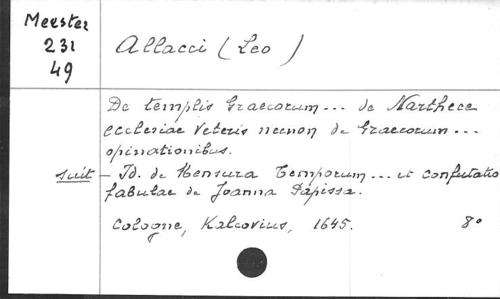 Meester
231
49
Allacci (Leo)
De templis Graecorum... de Narthece
ecclesiae veteris necnon de Graecorum...
opinationibus.
suit - Id. de Mensura Temporum... et confutatio
fabulae de Joanna Papissa.
Cologne, Kalcovius, 1645. 8°